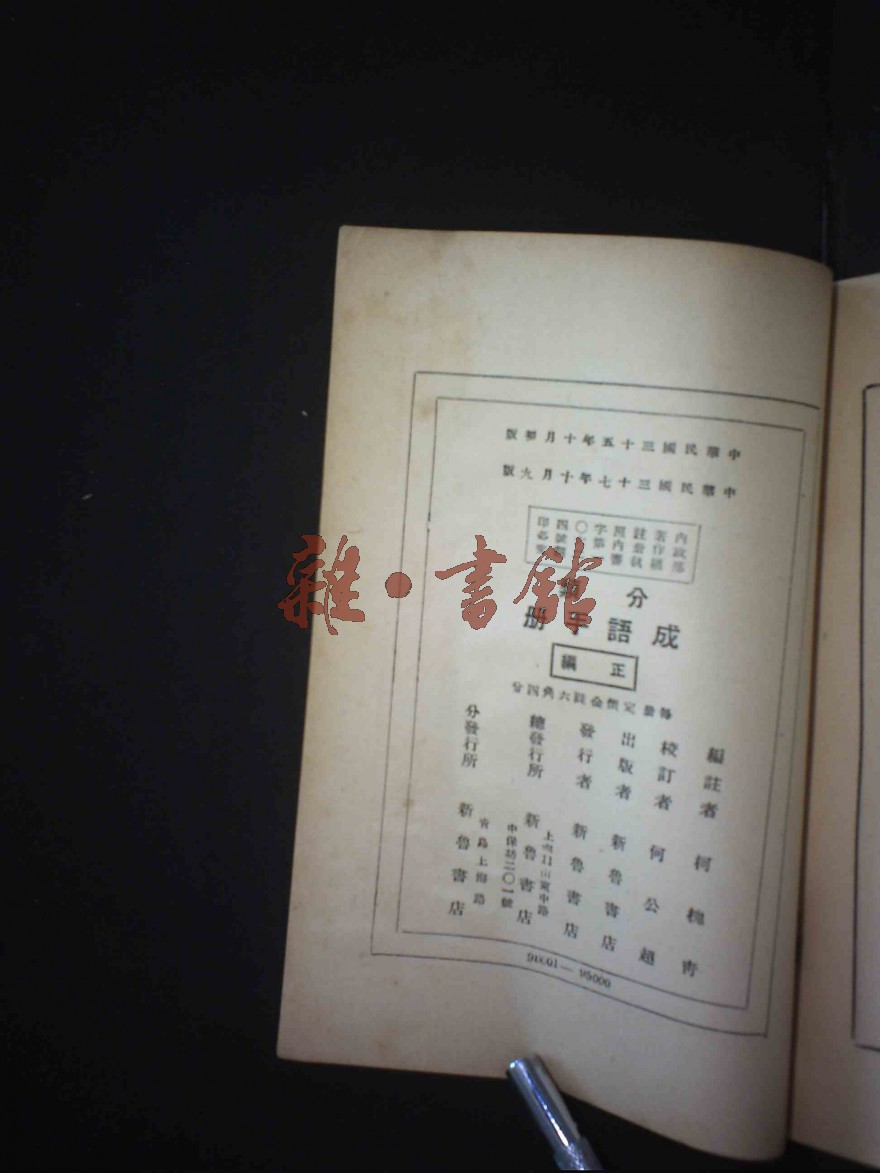 中華民國三十五年十月初版
中華民國三十七年十月九版
內政部
著作權
註冊執
照內警
字第
〇
四號
印必
分類
成語手册
正編
每册定價金圓六角四分
編註者 柯槐青
校訂者 何公超
出版者 新魯書店
發行者 新魯書店
總發行所 新魯書店
上海山東中路
中保坊二〇一號
分發行所 新魯書店
青島上海路
90001—95000
雜·書館